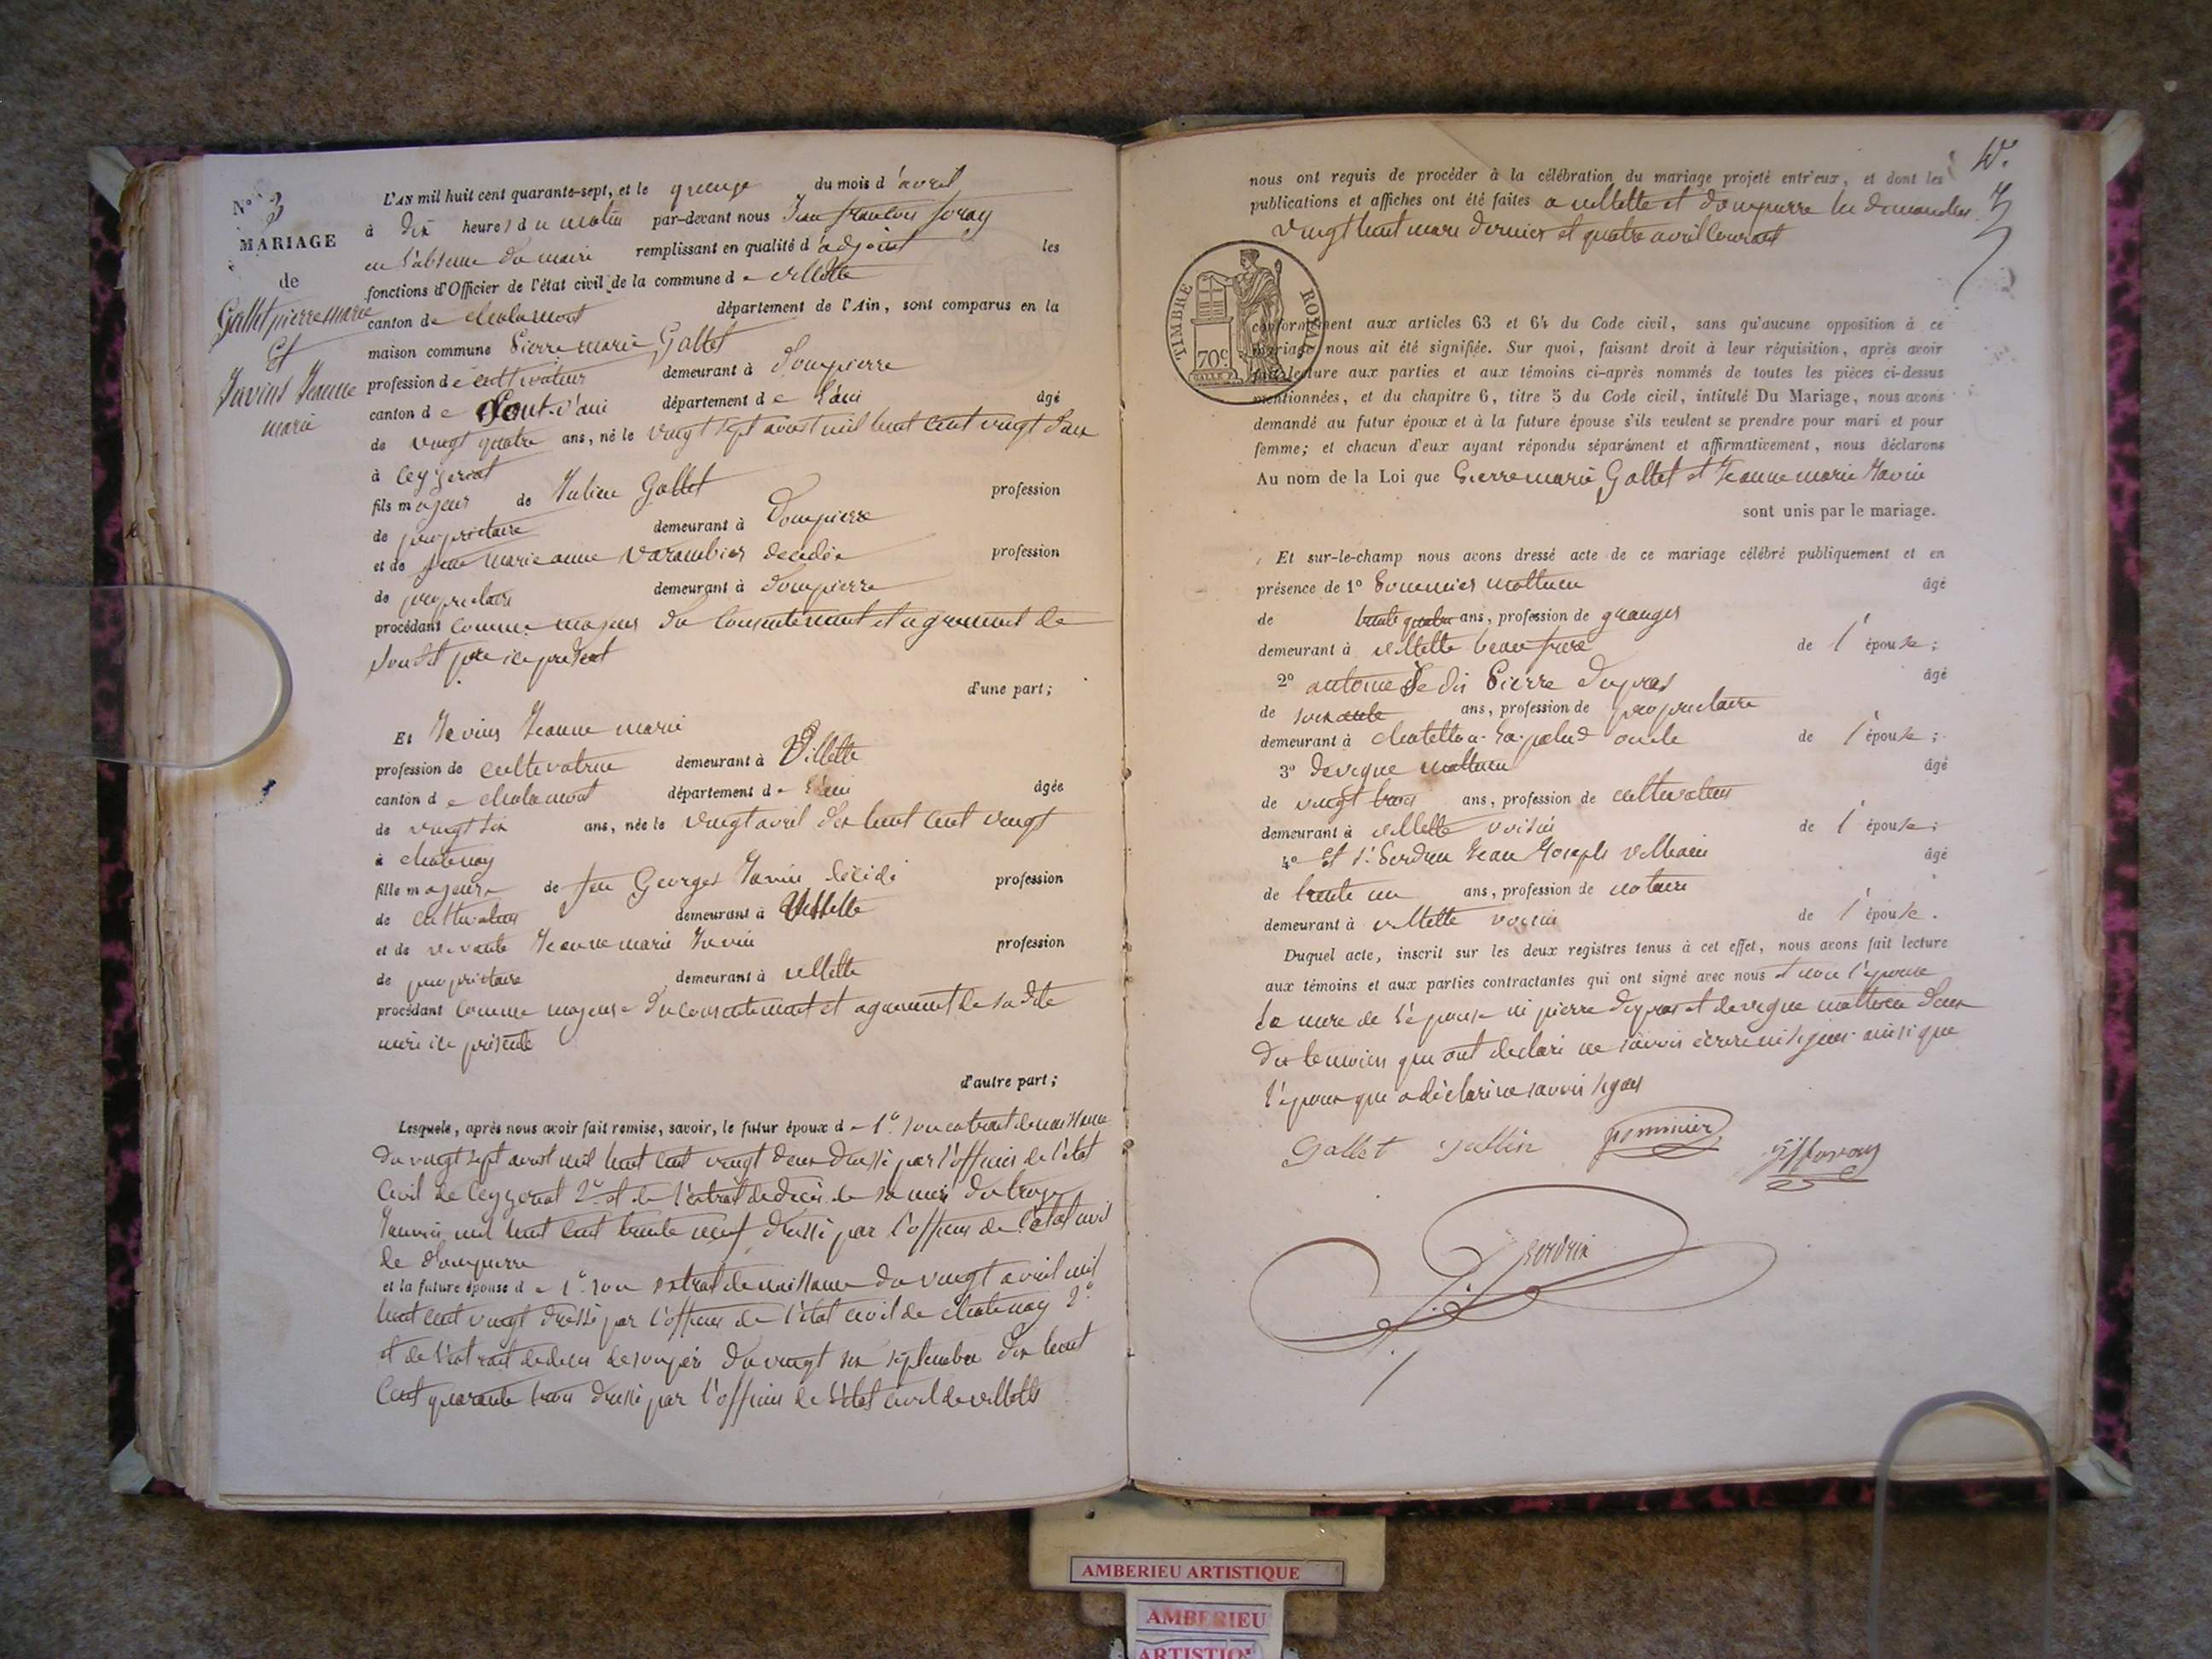 N° 3
MARIAGE
de
Gallet pierre marie
Et
Javin Jeanne
marie
L'AN mil huit cent quarante-sept, et le quinze du mois d'avril
à dix heures du matin par-devant nous Jean françois foray
en l'absence du maire remplissant en qualité d'adjoint les
fonctions d'Officier de l'état civil de la commune de villette
canton de chalamont département de l'Ain, sont comparus en la
maison commune Pierre marie Gallet
profession de cultivateur demeurant à Dompierre
canton de Pont-d'ain département de l'ain âgé
de vingt quatre ans, né le vingt sept aoust mil huit cent vingt deux
à Ceyzeriat
fils majeur de Julien Gallet profession
de propriétaire demeurant à Dompierre
et de feue marie anne Varambier décédée profession
de propriétaire demeurant à Dompierre
procédant comme majeur du consentement et agrement de
son dit père ice présent
d'une part;
Et Javin Jeanne marie
profession de cultivatrice demeurant à Villette
canton de chalamont département de l'ain âgée
de vingt six ans, née le vingt avril dix huit cent vingt
à chatenay
fille majeure de feu Georges Javin décédé profession
de cultivateur demeurant à Villette
et de vivante Jeanne marie Javin profession
de propriétaire demeurant à villette
procédant comme majeure du consentement et agrement de sa dite
mère ice présente
d'autre part;
Lesquels, après nous avoir fait remise, savoir, le futur époux de 1° son extrait de naissance
du vingt sept aoust mil huit cent vingt deux dressé par l'officier de l'état
civil de Ceyzeriat 2° et de l'extrait de décès de sa mère du
Janvier mil huit cent trente neuf dressé par l'officier de l'état civil
de Dompierre
et la future épouse de 1° son extrait de naissance du vingt avril mil
huit cent vingt dressé par l'officier de l'état civil de chatenay 2°
et de l'extrait de décès de son père du vingt six septembre dix huit
cent quarante trois dressé par l'officier de l'état civil de villette
nous ont requis de procéder à la célébration du mariage projeté entr'eux, et dont les
publications et affiches ont été faites a villette et dompierre les dimanches
vingt huit mars dernier et quatre avril courant
TIMBRE ROYAL
70c
conformément aux articles 63 et 64 du Code civil, sans qu'aucune opposition à ce
mariage nous ait été signifiée. Sur quoi, faisant droit à leur réquisition, après avoir
fait lecture aux parties et aux témoins ci-après nommés de toutes les pièces ci-dessus
mentionnées, et du chapitre 6, titre 5 du Code civil, intitulé Du Mariage, nous avons
demandé au futur époux et à la future épouse s'ils veulent se prendre pour mari et pour
femme; et chacun d'eux ayant répondu séparément et affirmativement, nous déclarons
Au nom de la Loi que Pierre marie Gallet et Jeanne marie Javin
sont unis par le mariage.
Et sur-le-champ nous avons dressé acte de ce mariage célébré publiquement et en
présence de 1° Pommier mathieu âgé
de trente quatre ans, profession de granger
demeurant à villette beau frere de l'épouse;
2° antoine dit Pierre Dupras âgé
de soixante ans, profession de propriétaire
demeurant à chatillon-la-palud oncle de l'épouse;
3° devigne mathieu âgé
de vingt trois ans, profession de cultivateur
demeurant à villette voisin de l'épouse;
4° Et Sr Perdrix Jean Joseph âgé
de trente un ans, profession de notaire
demeurant à villette voisin de l'épouse.
Duquel acte, inscrit sur les deux registres tenus à cet effet, nous avons fait lecture
aux témoins et aux parties contractantes qui ont signé avec nous et non l'épouse
la mère de l'épouse ni pierre dupras et devigne mathieu deux
des temoins qui ont déclaré ne savoir écrire ni signer ainsi que
l'épouse que a déclaré ne savoir signer
Gallet Jullin Pommier Jf foray
Perdrix
AMBERIEU ARTISTIQUE
AMBERIEU
ARTISTIQ